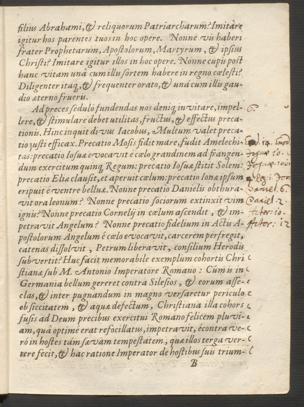 filius Abrahami, & reliquorum Patriarcharum? Imitare
igitur hos parentes tuos in hoc opere. Nonne vis haberi
frater Prophetarum, Apostolorum, Martyrum, & ipsius
Christi? Imitare igitur illos in hoc opere. Nonne cupis post
hanc vitam unà cum illis sortem habere in regno cœlesti?
Diligenter itaq, & frequenter orato, & unà cum illis gau-
dio æterno frueris.
Ad preces sedulò fundendas nos deniq invitare, impel-
lere, & stimulare debet utilitas, fructus, & effectus preca-
tionis. Hinc inquit divus Iacobus, Multum valet preca-
tio justi efficax. Precatio Mosis fidit mare, fudit Amelechi-
tas: precatio Iosuæ evocavit è cœlo grandinem ad stangen-
dum exercitum quinq Regum: precatio Iosuæ stitit Solem:
precatio Eliæ clausit, et aperuit cœlum: precatio Ionæ ipsum
eripuit è ventre belluæ. Nonne precatio Danielis obtura-
vit ora leonum? Nonne precatio sociorum extinxit vim
ignis? Nonne precatio Cornelij in cœlum ascendit, & im-
petravit Angelum? Nonne precatio fidelium in Actis A-
postolorum Angelum è cœlo evocavit, carcerem perfregit,
catenas dissolvit, Petrum liberavit, consilium Herodis
subvertit? Huc facit memorabile exemplum cohortis Chri
stianæ sub M. Antonio Imperatore Romano: Cum is in
Germania bellum gereret contra Silesios, & eorum asse-
clas, & inter pugnandum in magno versaretur periculo
ob siccitatem, & aquæ defectum, Christiana illa cohors
fusis ad Deum precibus exercitui Romano felicem pluvi-
am, quâ optimè erat refocillatus, impetravit, è contra ve-
rò in hostes tam sævam tempestatem, quæ illos terga ver-
tere fecit, & hac ratione Imperator de hostibus suis trium-
B